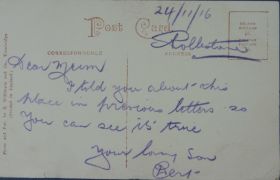 24/11/16
Post Card
Rollestone
CORRESPONDENCE
ADDRESS
Dear Mum
I told you about this
place in previous letters so
you can see it's true
Your loving Son
Bert